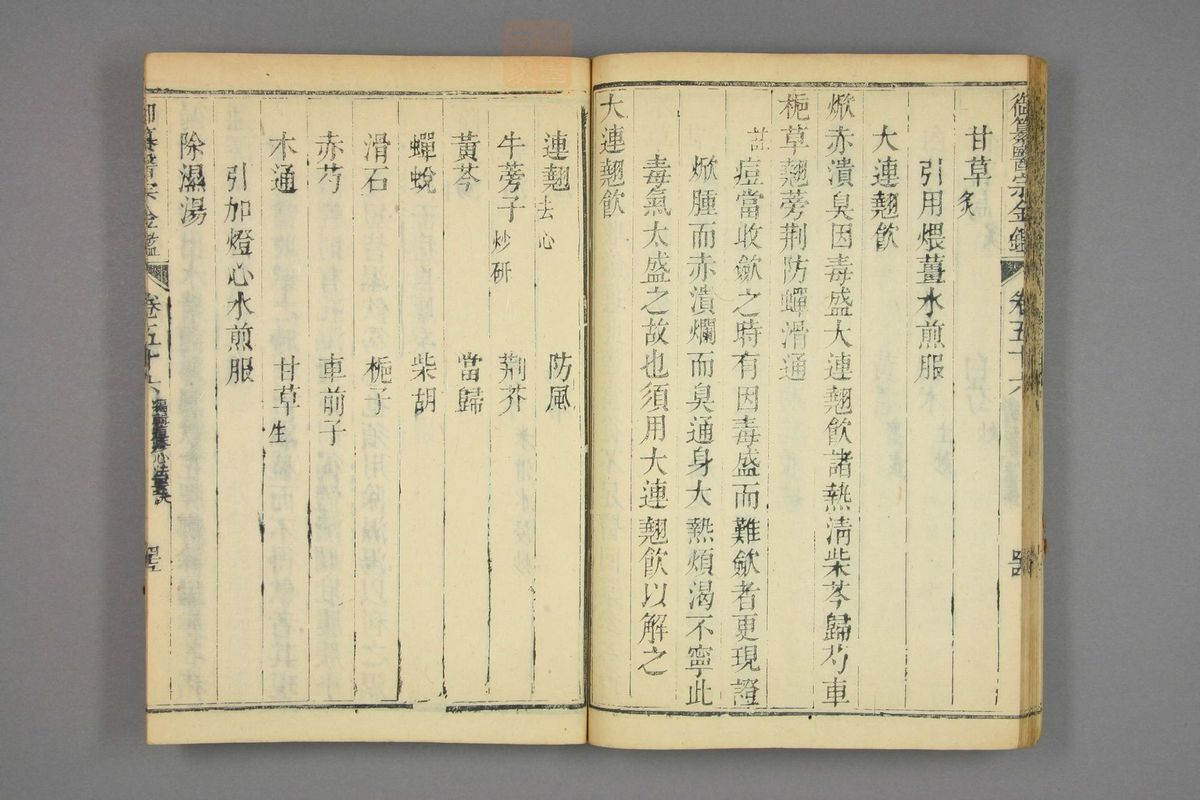 御纂醫宗金鑑 卷五十六
甘草炙
引用煨薑水煎服
大連翹飲
焮赤潰臭因毒盛大連翹飲諸熱淸柴芩歸芍車
梔草翹蒡荆防蟬滑通
註痘當收斂之時有因毒盛而難斂者更現證
焮腫而赤潰爛而臭通身大熱煩渴不寧此
毒氣太盛之故也須用大連翹飮以解之
大連翹飮
連翹去心 防風
牛蒡子炒研 荆芥
黃芩 當歸
蟬蛻 柴胡
滑石 梔子
赤芍 車前子
木通 甘草生
引加燈心水煎服
除濕湯
御纂醫宗金鑑 卷五十六